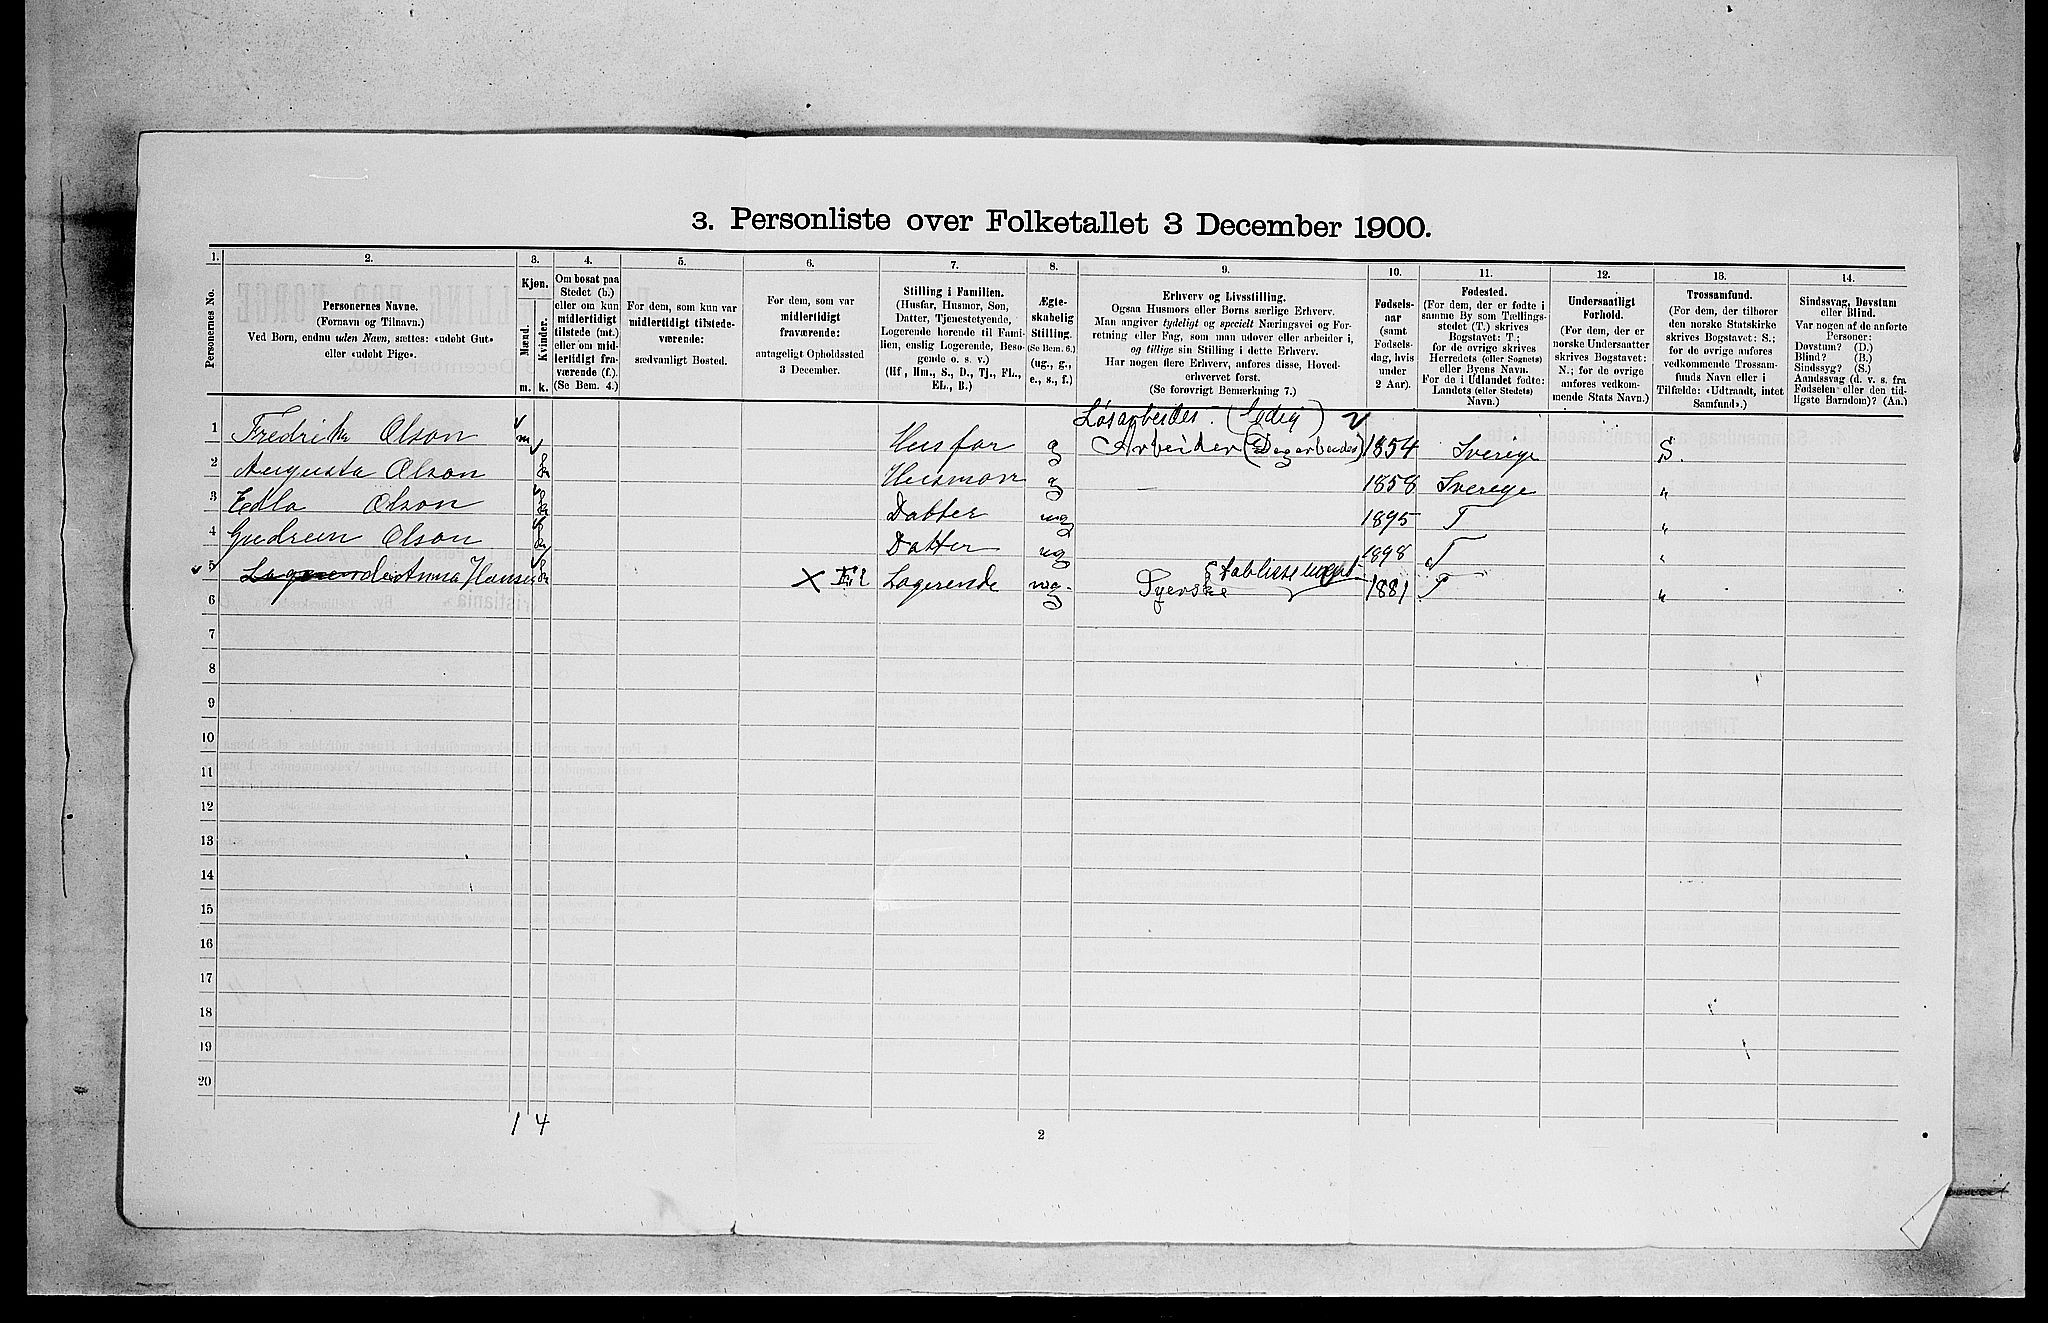 3. Personliste over Folketallet 3 December 1900.
1. 2. 3. 4. 5. 6. 7. 8. 9. 10. 11. 12. 13. 14.
Personernes No.
Personernes Navne.
(Fornavn og Tilnavn.)
Ved Børn, endnu uden Navn, sættes: «udøbt Gut»
eller «udøbt Pige».
Kjøn.
Mænd.
Kvinder.
m. k.
Om bosat paa
Stedet (b.)
eller om kun
midlertidigt
tilstede (mt.)
eller om mid-
lertidigt fra-
værende (f.).
(Se Bem. 4.)
For dem, som kun var
midlertidigt tilstede-
værende:
sædvanligt Bosted.
For dem, som var
midlertidigt
fraværende:
antageligt Opholdssted
3 December.
Stilling i Familien.
(Husfar, Husmor, Søn,
Datter, Tjenestetyende,
Logerende hørende til Fami-
lien, enslig Logerende, Besø-
gende o. s. v.)
(Hf., Hm., S., D., Tj., FL.,
EL., B.)
Ægte-
skabelig
Stilling.
(Se Bem. 6.)
(ug., g.,
e., s., f.)
Erhverv og Livsstilling.
Ogsaa Husmors eller Børns særlige Erhverv.
Man angiver tydeligt og specielt Næringsvei og For-
retning eller Fag, som man udøver eller arbeider i,
og tillige sin Stilling i dette Erhverv.
Har nogen flere Erhverv, anføres disse, Hoved-
erhvervet først.
(Se forøvrigt Bemærkning 7.)
Fødsels-
aar
(samt
Fødsels-
dag, hvis
under
2 Aar).
Fødested.
(For dem, der er fødte i
samme By som Tællings-
stedet (T.) skrives
Bogstavet: T.;
for de øvrige skrives
Herredets (eller Sognets)
eller Byens Navn.
For de i Udlandet fødte:
Landets (eller Stedets)
Navn.)
Undersaatligt
Forhold.
(For dem, der er
norske Undersaatter
skrives Bogstavet:
N.; for de øvrige
anføres vedkom-
mende Stats Navn.)
Trossamfund.
(For dem, der tilhører
den norske Statskirke
skrives Bogstavet: S.;
for de øvrige anføres
vedkommende Trossam-
funds Navn eller i
Tilfælde: «Udtraadt, intet
Samfund».)
Sindssvag, Døvstum
eller Blind.
Var nogen af de anførte
Personer:
Døvstum? (D.)
Blind? (B.)
Sindssyg? (S.)
Aandssvag (d. v. s. fra
Fødselen eller den tid-
ligste Barndom)? (Aa.)
Løsarbeider. (ledig)
1 Fredrik Olson m Husfar g Arbeider (Dagarbeider) 1854 Sverige S.
2 Augusta Olson k Husmor g — 1858 Sverige "
3 Edla Olson k Datter ug 1895 T "
4 Gudrun Olson k Datter ug 1898 T "
Etablissement
5 Logerende Anna Hansen k X Logerende ug. Syerske 1881 T "
6
7
8
9
10
11
12
13
14
15
16
17
18
19
20
1 4
2